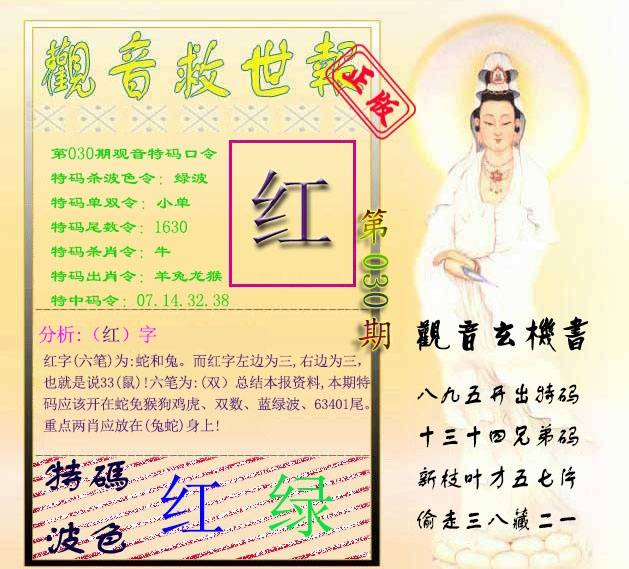 觀音救世報
正版
第030期观音特码口令
特码杀波色令：绿波
特码单双令：小单
特码尾数令：1630
特码杀肖令：牛
特码出肖令：羊兔龙猴
特中码令：07.14.32.38
红
第030期
分析:（红）字
红字(六笔)为:蛇和兔。而红字左边为三,右边为三,
也就是说33(鼠)!六笔为:(双）总结本报资料,本期特
码应该开在蛇兔猴狗鸡虎、双数、蓝绿波、63401尾。
重点两肖应放在(兔蛇)身上!
特碼
波色
红 绿
觀音玄機書
八九五开出特码
十三十四兄弟码
新枝叶才五七件
偷走三八藏二一